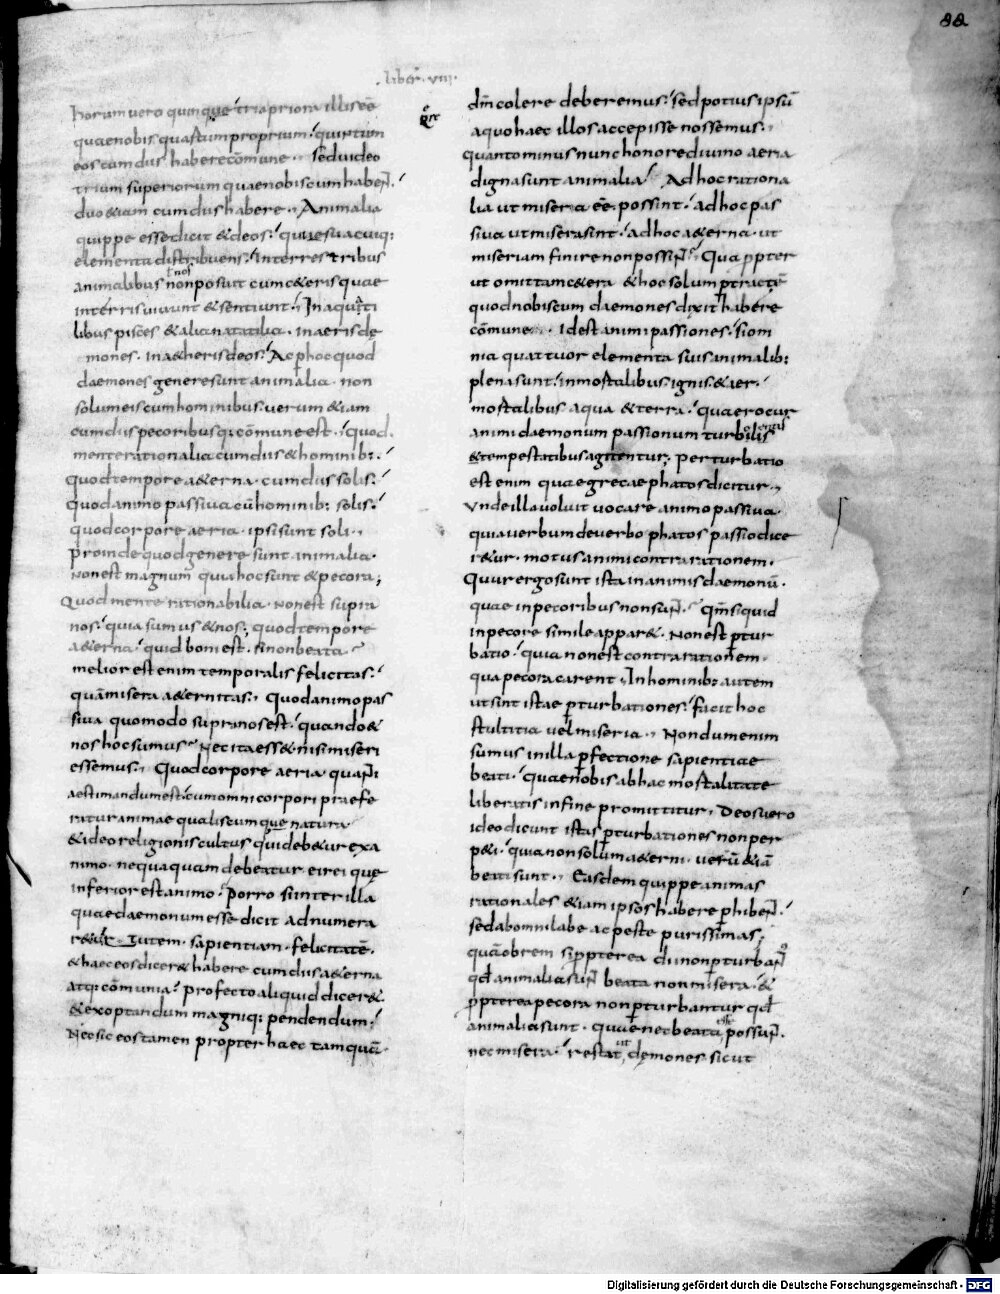 88
liber viii
horum vero quinque tria priora illis eē
quae nobis quastum proprium quartum
eos cum diis habere cōmune sed video
trium superiorum quae nobiscum haben̄
duo etiam cum diis habere Animalia
quippe esse dicit & deos quique sua cuiq:
elementa distribuens in terrestribus
animalibus nos posuit cum ceteris quae
in terris vivunt & sentiunt In aquati
libus pisces & alia natatilia in aeris de
mones in aetheris deos Ac p hoc quod
daemones genere sunt animalia non
solum eis cum hominibus verum etiam
cum diis pecoribusq: cōmune est quod
mente rationalia cum diis & hominib:
quod tempore aeterna cum diis solis
quod animo passiva cū hominib: solis
quod corpore aeria ipsi sunt soli
proinde quod genere sunt animalia
non est magnum quia hoc sunt & pecora
Quod mente rationabilia non est supra
nos quia sumus & nos quod tempore
aeterna quid boni est si non beata
melior est enim temporalis felicitas
quā misera aeternitas Quod animo pas
siva quomodo supra nos est quando &
nos hoc sumus Nec ita esset nisi miseri
essemus Quod corpore aeria quanti
aestimandum est cum omni corpori praefe
ratur animae qualiscumque natura
& ideo religionis cultus qui debetur ex a
nimo nequaquam debeatur ei rei que
inferior est animo Porro si inter illa
quae daemonum esse dicit adnumera
ret virtutem sapientiam felicitatē
& haec eos diceret habere cum diis aeterna
atq: cōmunia profecto aliquid diceret
& exoptandum magniq: pendendum
Nec sic eos tamen propter haec tamquā
dm̄ colere deberemus sed potius ipsū
a quo haec illos accepisse nossemus
quanto minus nunc honore divino aeria
digna sunt animalia Ad hoc rationa
lia ut misera eē possint ad hoc pas
siva ut misera sint ad hoc aeterna ut
miseriam finire non possin̄ Qua ppter
ut omittam cetera & hoc solum ptractē
quod nobiscum daemones dixit habere
cōmune Id est animi passiones si om
nia quattuor elementa suis animalib:
plena sunt inmortalibus ignis & aer
mortalibus aqua & terra quaero cur
animi daemonum passionum turbolentiis
& tempestatibus agitentur perturbatio
est enim quae grece phatos dicitur
Unde illa voluit vocare animo passiva
quia verbum de verbo phatos passio dice
retur motus animi contra rationem
Quur ergo sunt ista in animis daemonū
quae in pecoribus non sun̄ Qm̄ si quid
in pecore simile apparet non est ptur
batio quia non est contra rationem
qua pecora carent In hominib: autem
ut sint istae pturbationes facit hoc
stultitia vel miseria Nondum enim
sumus in illa pfectione sapientiae
beati quae nobis ab hac mortalitate
liberatis in fine promittitur Deos vero
ideo dicunt istas pturbationes non per
peti quia non solum aeterni verū etiā
beati sunt Easdem quippe animas
rationales etiam ipsos habere phiben̄
sed ab omni labe ac peste purissimas
quāobrem si ppterea dii non pturban̄
qd animalia sun̄ beata non misera &
ppterea pecora non pturbantur qd
animalia sunt quae nec beata possun̄
nec misera restat ut dęmones sicut
Digitalisierung gefördert durch die Deutsche Forschungsgemeinschaft - DFG